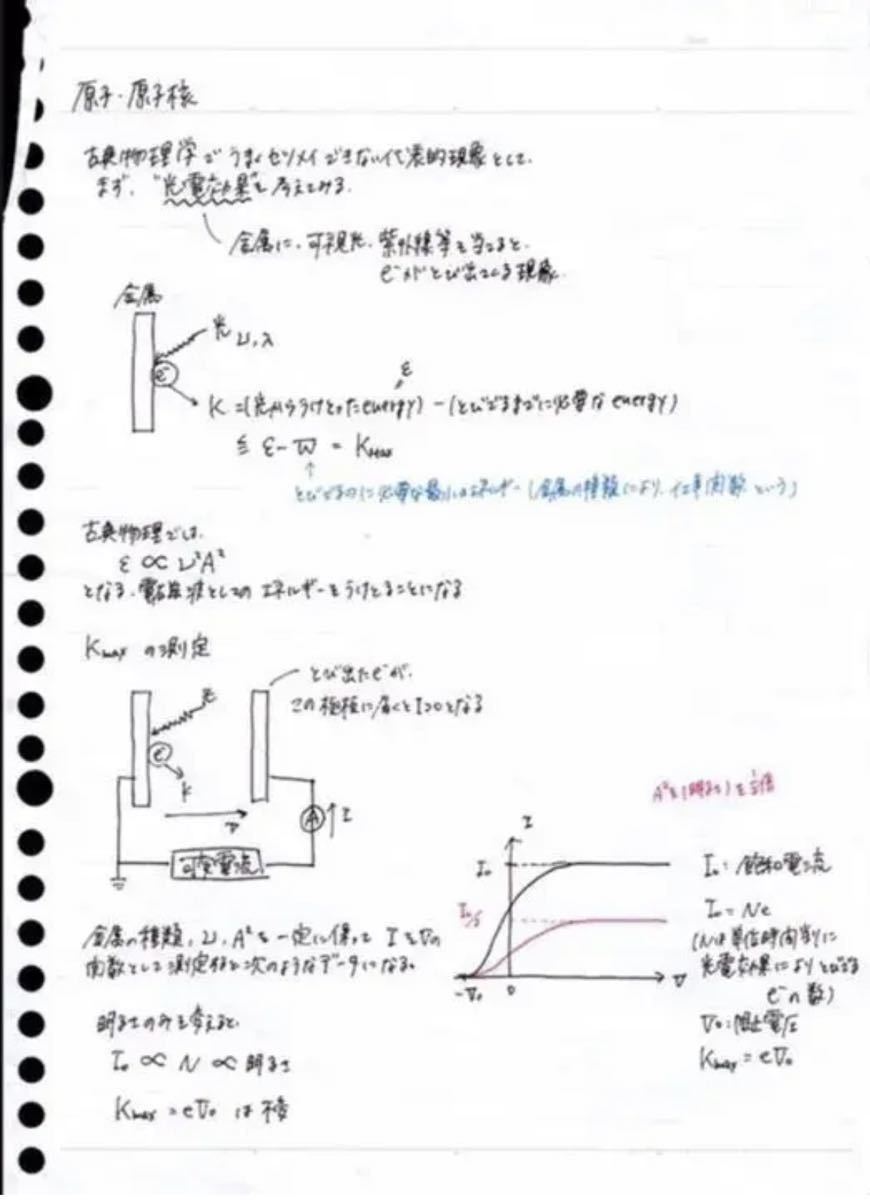 原子・原子核
古典物理学でうまくセツメイできない代表的現象として.
まず、"光電効果"を考えてみる.
金属に、可視光、紫外線等を当てると、
e⁻がとび出てくる現象.
金属
光 ν, λ
e⁻
ε
K =(光からうけとった energy) - (とびでるまでに必要な energy)
≦ ε - W = Kmax
とびでるのに必要な最小のエネルギー (金属の種類により、仕事関数 という)
古典物理では、
ε ∝ ν²A²
となる. 電磁波としての エネルギーをうけとることになる
Kmax の測定
とび出たe⁻が、
この極板に届くと I>0となる
光
e⁻
K
V
A
I
可変電流
A²を(明るさ)を
I
I₀
I₀/5
-V₀
0
V
I₀: 飽和電流
I₀ = Ne
(Nは単位時間当りに
光電効果によりとびでる
e⁻の数)
V₀: 阻止電圧
Kmax = eV₀
金属の種類, ν, A²を一定に保って IをVの
関数として測定すると次のようなデータになる.
明るさのみを変えると、
I₀ ∝ N ∝ 明るさ
Kmax = eV₀ は 不変